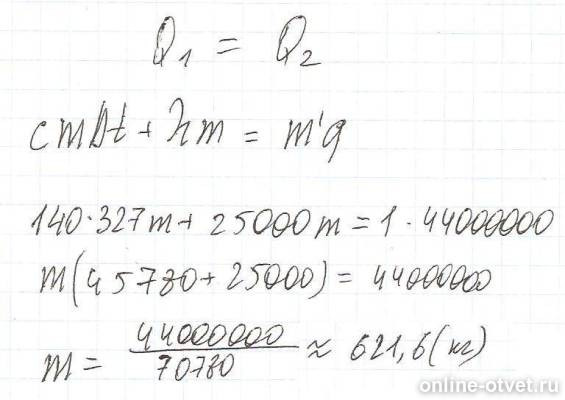 Q₁ = Q₂
cmΔt + λm = m'q
140·327m + 25000m = 1·44000000
m(45780 + 25000) = 44000000
m = 44000000/70780 ≈ 621,6 (кг)
online-otvet.ru